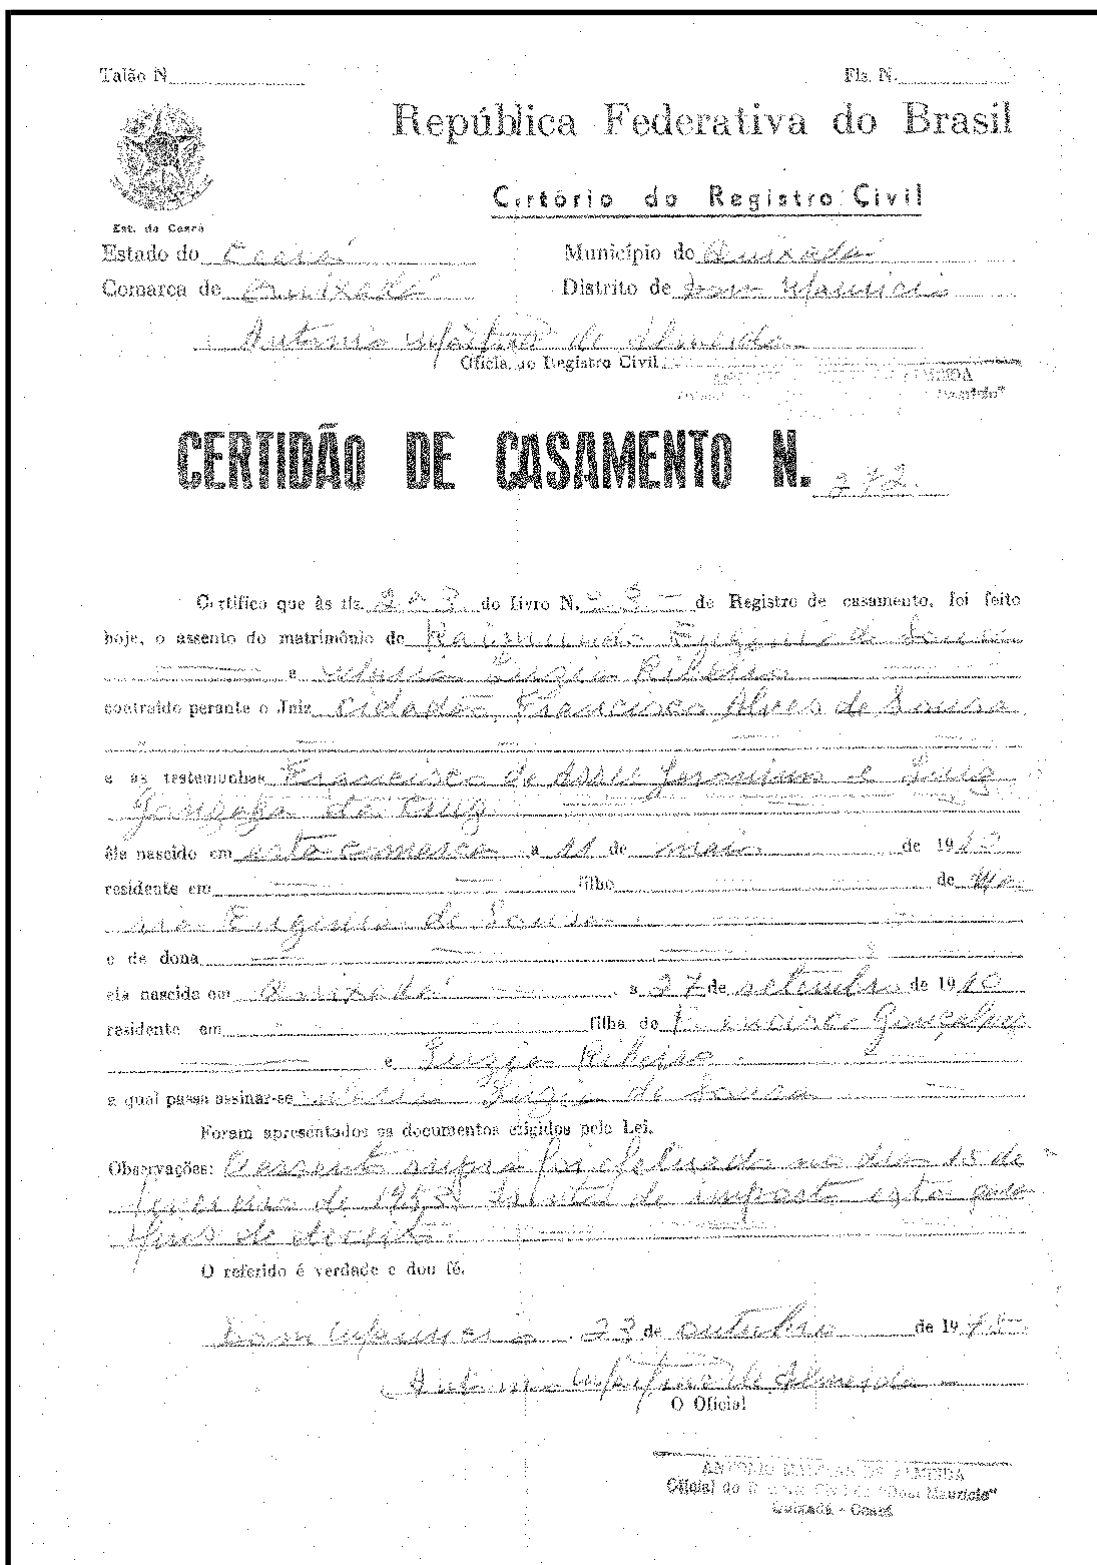 Talão N. Fls. N.
República Federativa do Brasil
Cartório do Registro Civil
Est. do Ceará
Estado do Ceará Município de Quixadá
Comarca de Quixadá Distrito de Dom Mauricio
Antonio de Almeida
Oficial do Registro Civil
ALMEIDA
Mauricio"
CERTIDÃO DE CASAMENTO N. 272.
Certifico que às fls. do livro N. de Registro de casamento, foi feito
hoje, o assento do matrimônio de Raimundo Eugenio de Sousa
e Maria Luzia Ribeiro
contraido perante o Juiz cidadão, Francisco Alves de Sousa
e as testemunhas Francisco de Assis Jeronimo e Luiz
Gonzaga da Cruz
êle nascido em esta comarca a 11 de maio de 19
residente em filho de Ma
ria Eugenia de Sousa.
e de dona
ela nascida em Quixadá a 27 de setembro de 1910
residente em filha de Francisco Gonçalves
e Luzia Ribeiro.
a qual passa assinar-se Maria Luzia de Sousa
Foram apresentados os documentos exigidos pela Lei.
Observações: O assento supra foi efetuado no dia 15 de
fevereiro de 1955. de imposto esta para
fins de direito.
O referido é verdade e dou fé.
Dom Mauricio 23 de outubro de 1975
Antonio de Almeida
O Oficial
ANTONIO DE ALMEIDA
Oficial do "Dom Mauricio"
Quixadá - Ceará